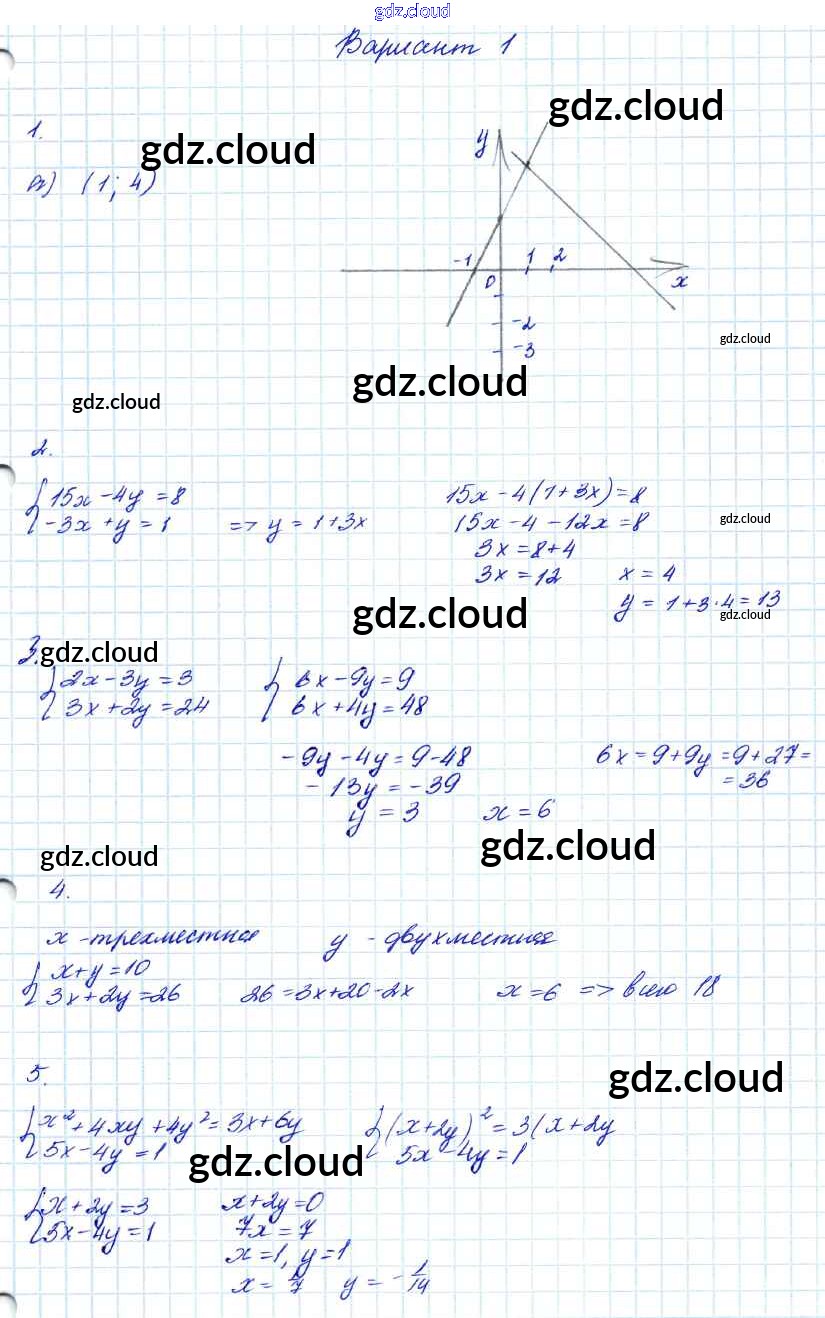 gdz.cloud
Вариант 1
gdz.cloud
1.
gdz.cloud
y
а) (1; 4)
-1 1 2
0 x
-2
-3
gdz.cloud
gdz.cloud
gdz.cloud
2.
{ 15x - 4y = 8
-3x + y = 1 => y = 1 + 3x
15x - 4(1 + 3x) = 8
15x - 4 - 12x = 8
gdz.cloud
3x = 8 + 4
3x = 12 x = 4
y = 1 + 3 · 4 = 13
gdz.cloud
gdz.cloud
3.
gdz.cloud
{ 2x - 3y = 3
3x + 2y = 24
{ 6x - 9y = 9
6x + 4y = 48
-9y - 4y = 9 - 48
- 13y = -39
y = 3 x = 6
6x = 9 + 9y = 9 + 27 =
= 36
gdz.cloud
gdz.cloud
4.
x - трехместная y - двухместная
{ x + y = 10
3x + 2y = 26 26 = 3x + 20 - 2x x = 6 => всего 18
5.
gdz.cloud
{ x² + 4xy + 4y² = 3x + 6y
5x - 4y = 1
{ (x + 2y)² = 3(x + 2y
5x - 4y = 1
gdz.cloud
{ x + 2y = 3
5x - 4y = 1
x + 2y = 0
7x = 7
x = 1, y = 1
y = -1/14